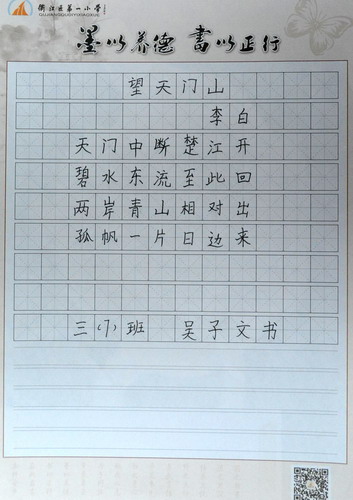 衢江区第一小学
墨以养德 書以正行
望天门山
李白
天门中断楚江开
碧水东流至此回
两岸青山相对出
孤帆一片日边来
三(7)班 吴子文书